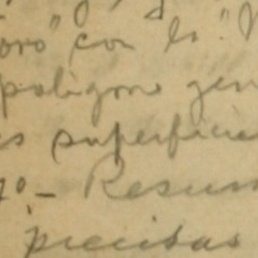 oro" con lo "
poligono gen
s superficie
go_ Resum
precisas